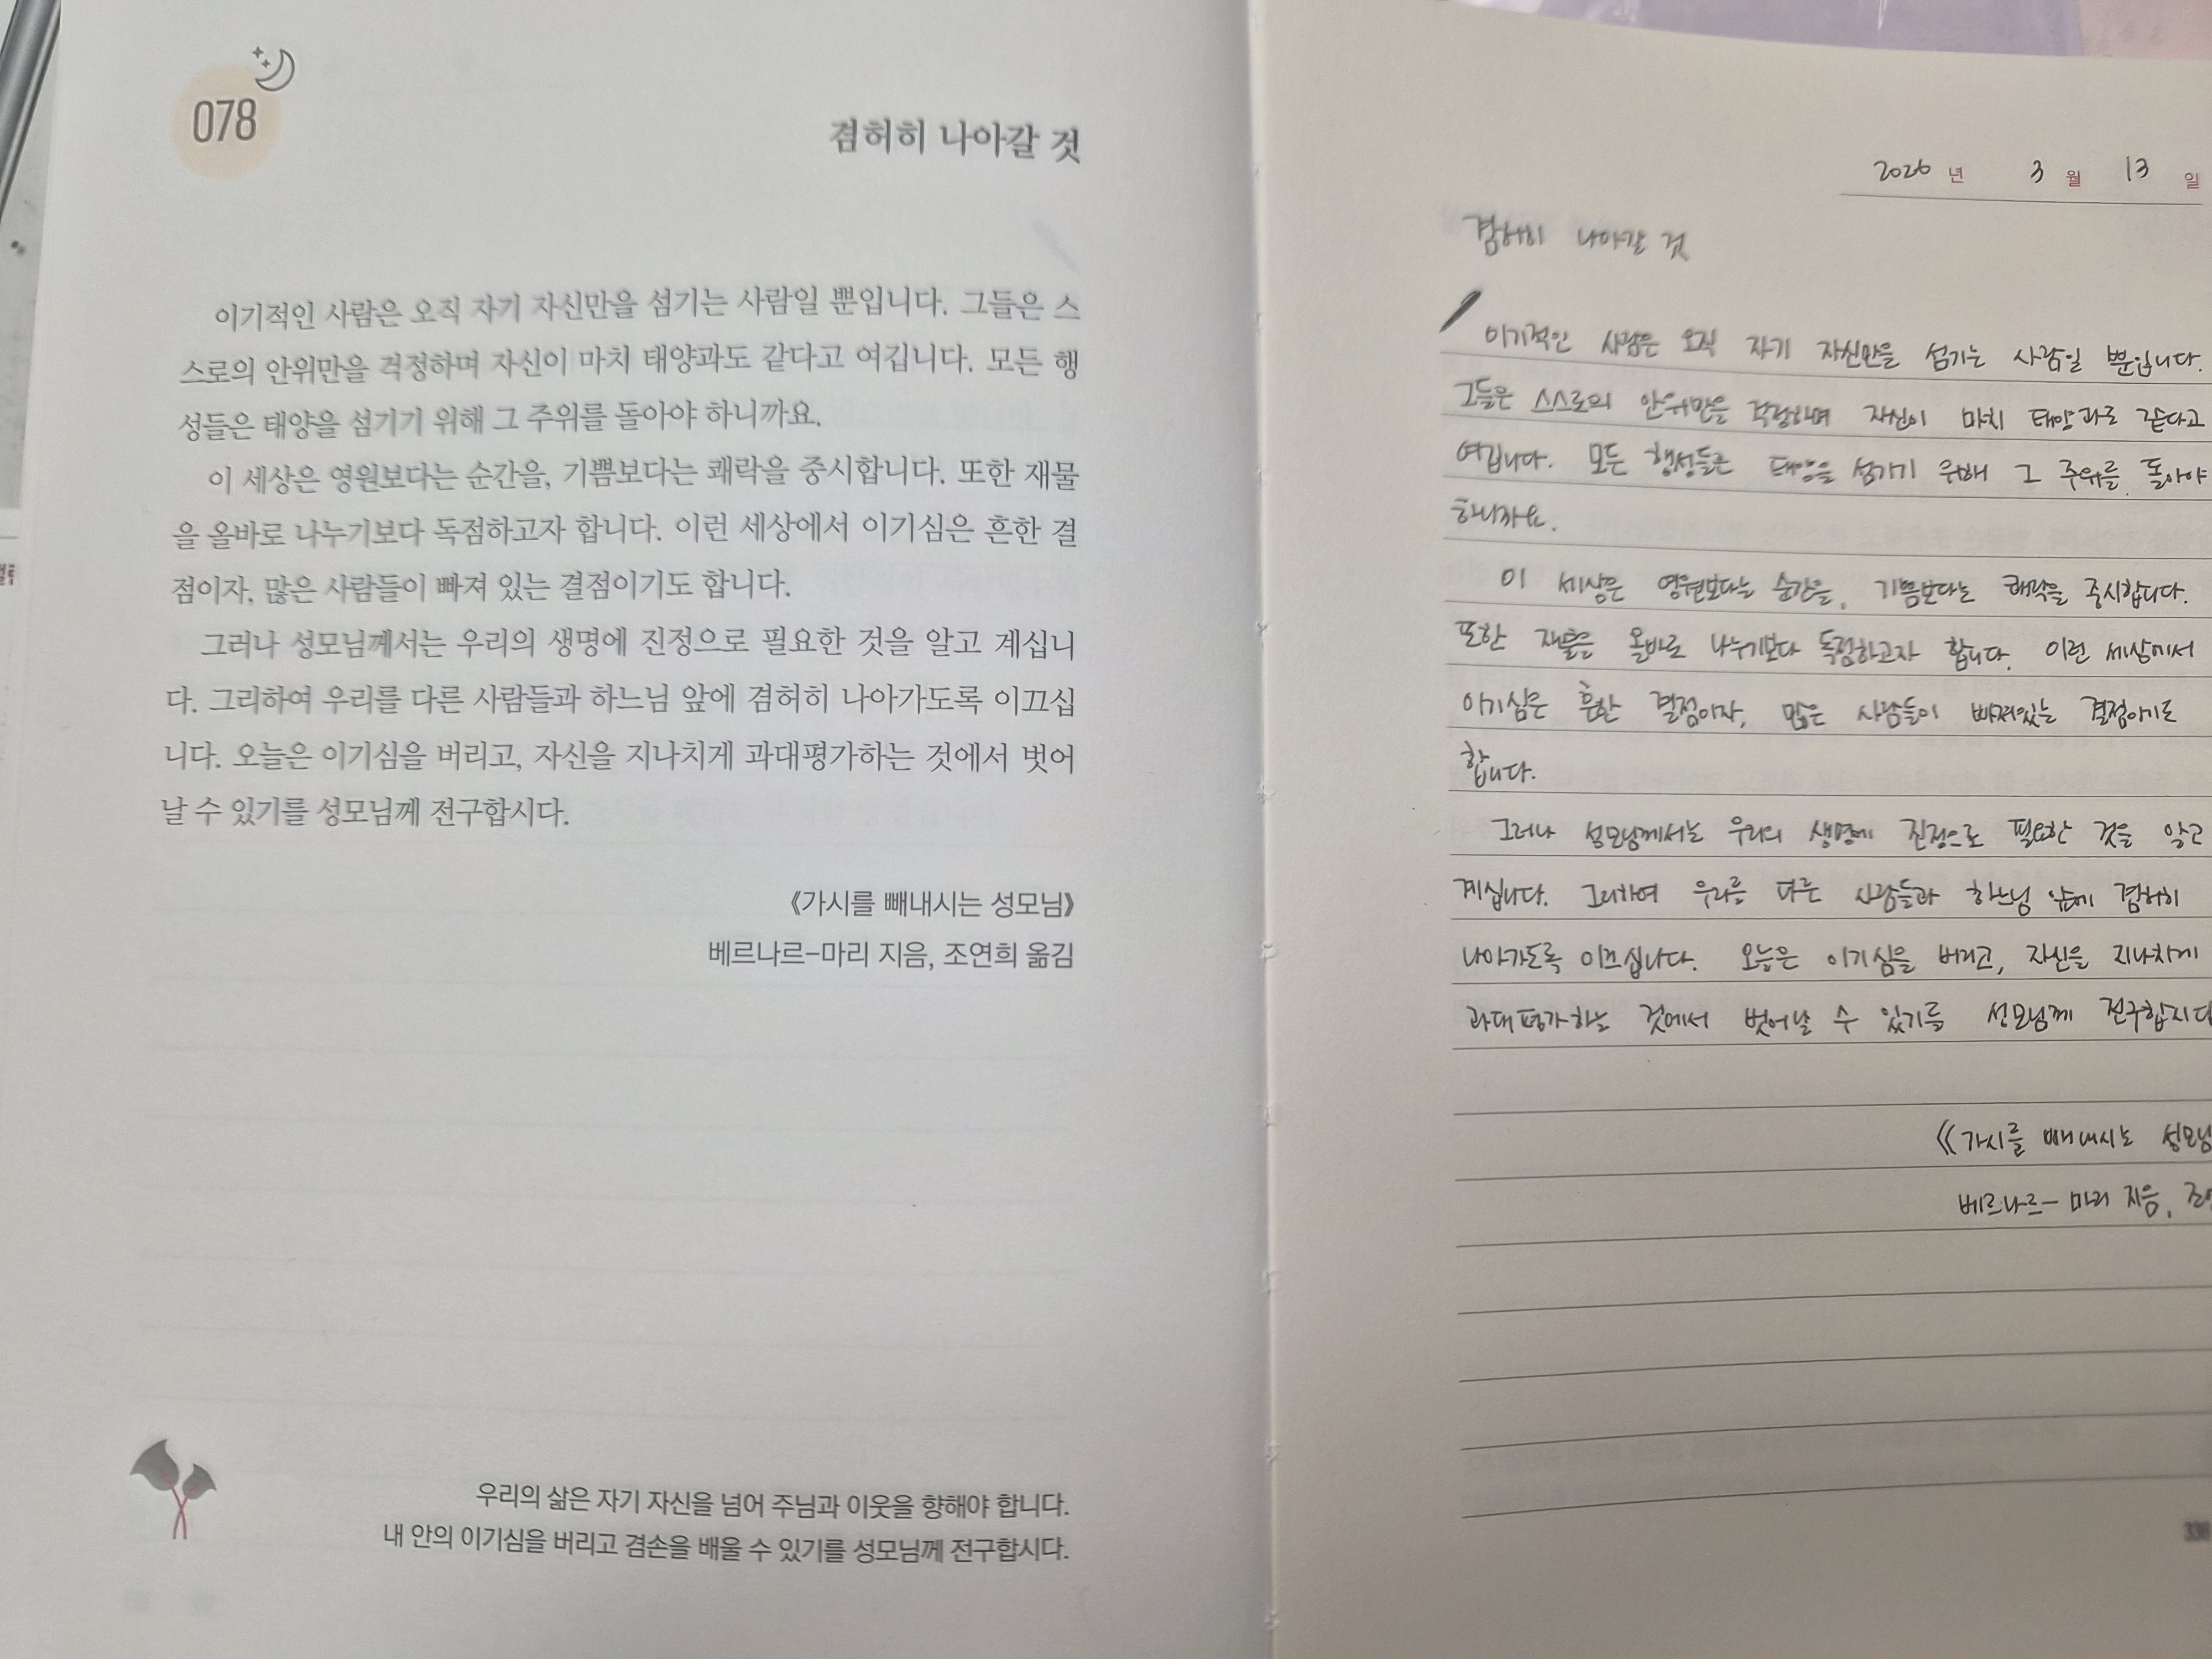 078
겸허히 나아갈 것
이기적인 사람은 오직 자기 자신만을 섬기는 사람일 뿐입니다. 그들은 스
스로의 안위만을 걱정하며 자신이 마치 태양과도 같다고 여깁니다. 모든 행
성들은 태양을 섬기기 위해 그 주위를 돌아야 하니까요.
이 세상은 영원보다는 순간을, 기쁨보다는 쾌락을 중시합니다. 또한 재물
을 올바로 나누기보다 독점하고자 합니다. 이런 세상에서 이기심은 흔한 결
점이자, 많은 사람들이 빠져 있는 결점이기도 합니다.
그러나 성모님께서는 우리의 생명에 진정으로 필요한 것을 알고 계십니
다. 그리하여 우리를 다른 사람들과 하느님 앞에 겸허히 나아가도록 이끄십
니다. 오늘은 이기심을 버리고, 자신을 지나치게 과대평가하는 것에서 벗어
날 수 있기를 성모님께 전구합시다.
《가시를 빼내시는 성모님》
베르나르-마리 지음, 조연희 옮김
우리의 삶은 자기 자신을 넘어 주님과 이웃을 향해야 합니다.
내 안의 이기심을 버리고 겸손을 배울 수 있기를 성모님께 전구합시다.
2026 년 3 월 13 일
겸허히 나아갈 것
이기적인 사람은 오직 자기 자신만을 섬기는 사람일 뿐입니다.
그들은 스스로의 안위만을 걱정하며 자신이 마치 태양과도 같다고
여깁니다. 모든 행성들은 태양을 섬기기 위해 그 주위를 돌아야
하니까요.
이 세상은 영원보다는 순간을, 기쁨보다는 쾌락을 중시합니다.
또한 재물을 올바로 나누기보다 독점하고자 합니다. 이런 세상에서
이기심은 흔한 결점이자, 많은 사람들이 빠져있는 결점이기도
합니다.
그러나 성모님께서는 우리의 생명에 진정으로 필요한 것을 알고
계십니다. 그리하여 우리를 다른 사람들과 하느님 앞에 겸허히
나아가도록 이끄십니다. 오늘은 이기심을 버리고, 자신을 지나치게
과대평가하는 것에서 벗어날 수 있기를 성모님께 전구합시다
《가시를 빼내시는 성모님
베르나르-마리 지음,